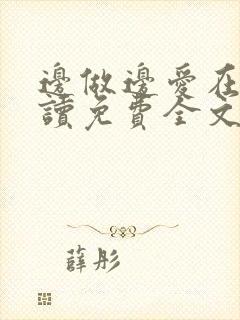 邊做邊愛在
讀免費全文
薛彤